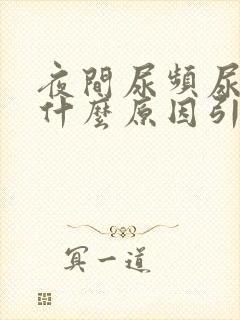 夜間尿頻尿
什麼原因引
冥一道